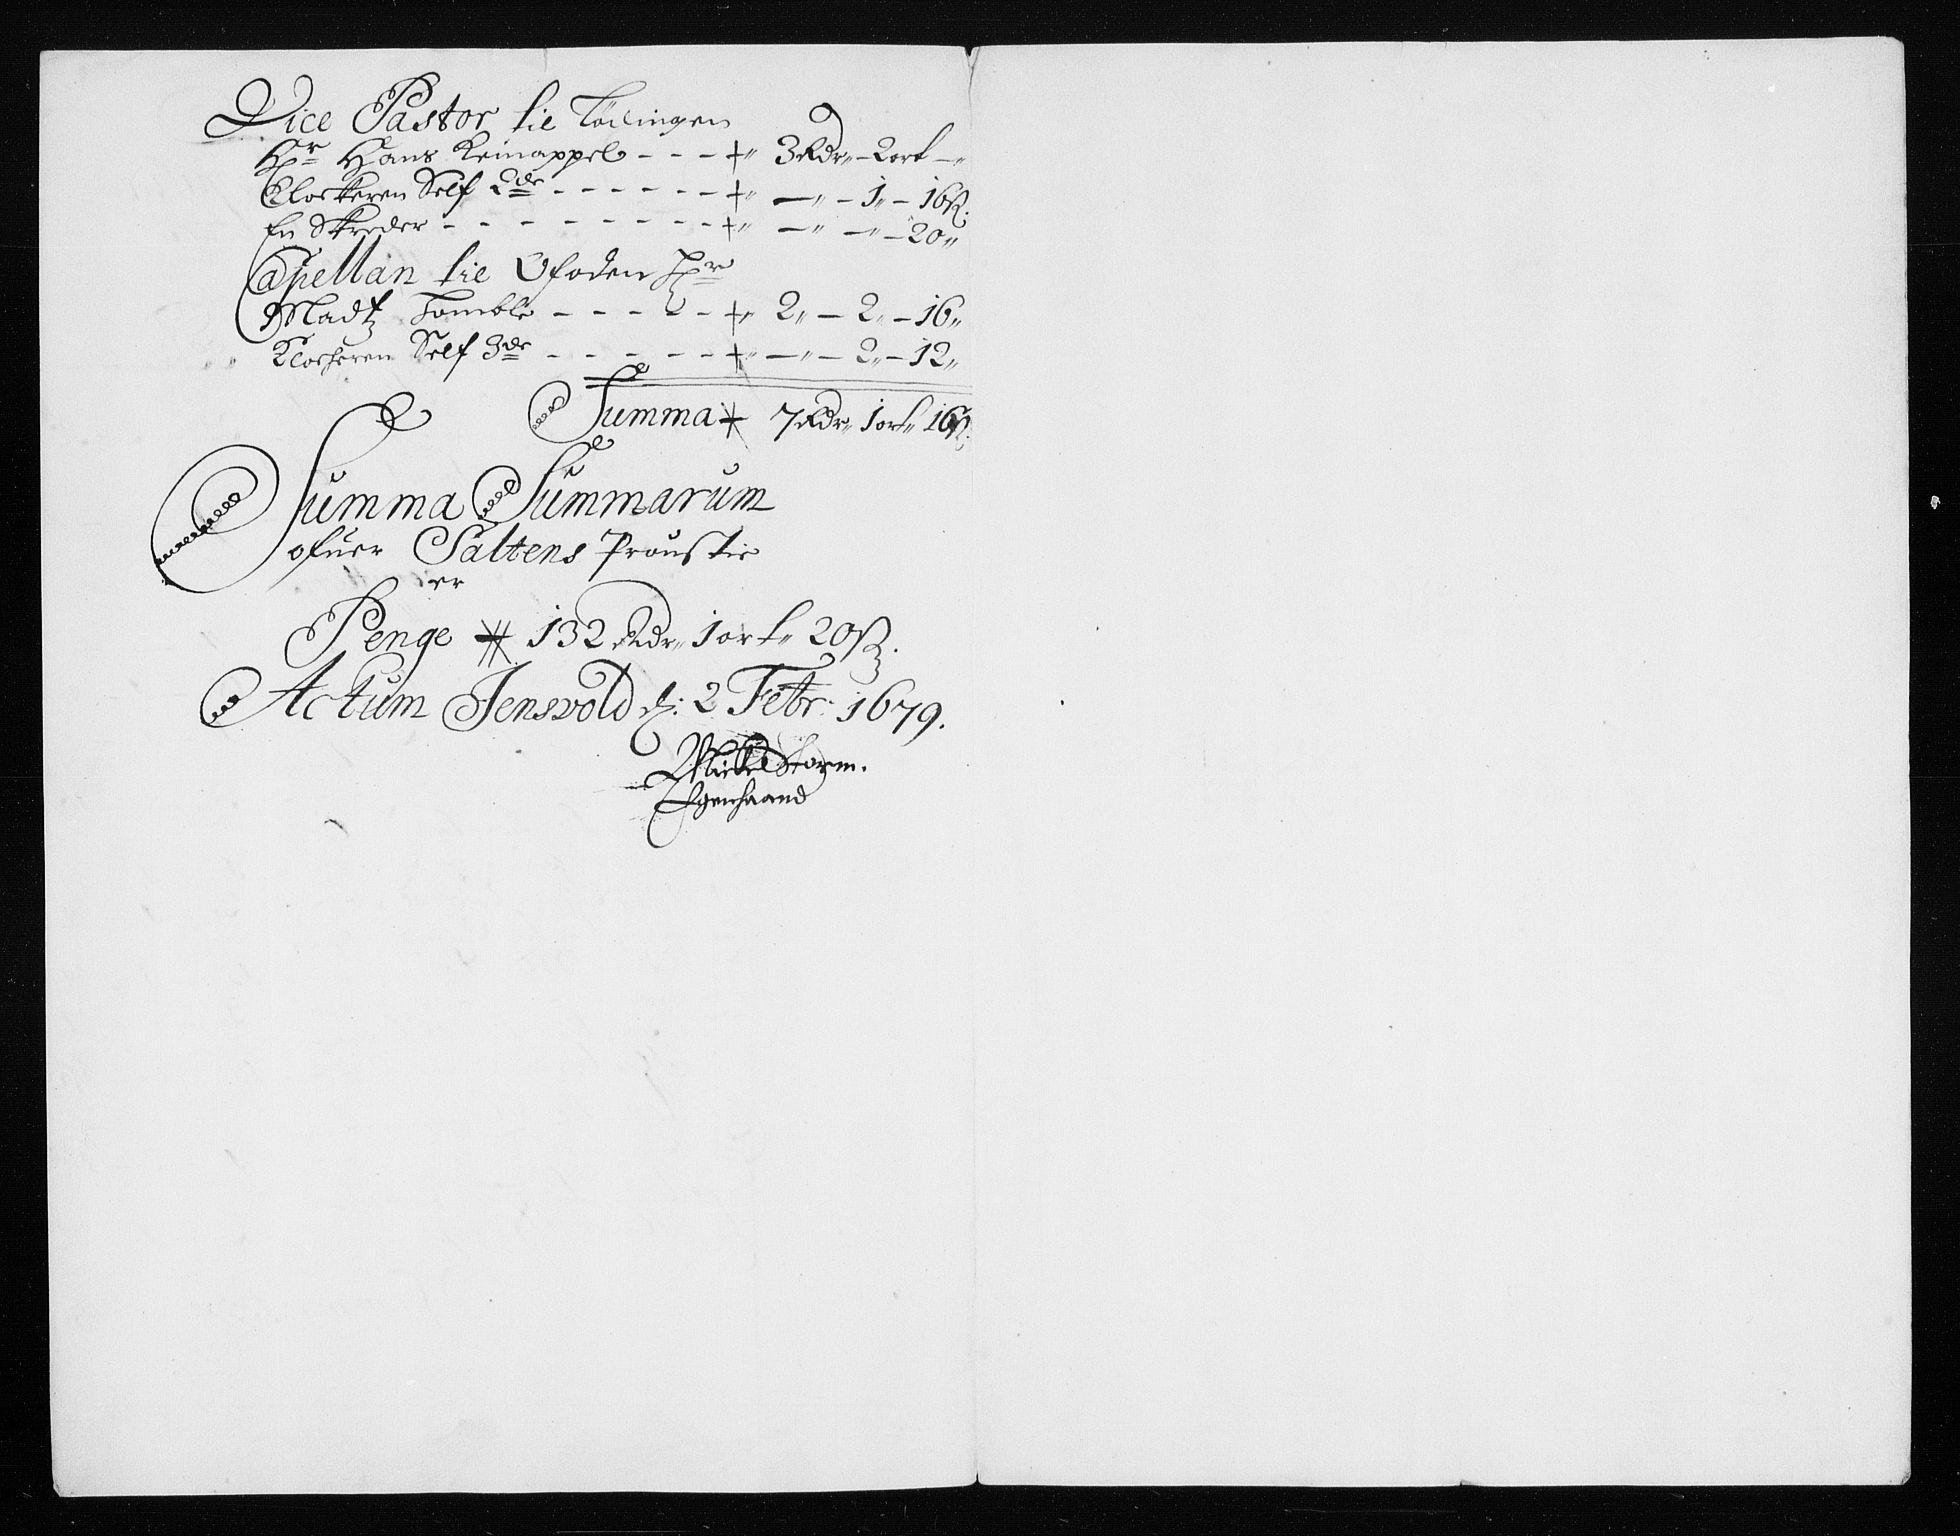 Vice Pastor til Lødingen
Hr Hans Reinappel - - - + „ 3 Rdr „ - 2 ort - „
Clockeren Self 2de - - - - - - + „ - „ - 1 „ - 16 ß.
En Skreder - - - - - - - - + „ - „ - „ - 20 „
Capellan til Ofoden Hr
Madtz Tomble - - - - - + „ 2 „ - 2 „ - 16 „
Klockeren Self 3de - - - - - + „ - „ - 2 „ - 12 „
Summa + 7 Rdr „ 1 ort „ 16 ß.
Summa Summarum
ofuer Saltens Proustie
er
Penge 132 Rdr „ 1 ort „ 20 ß.
Actum Jensvold d: 2 Febr: 1679.
Mickel Storm.
Egenhaand